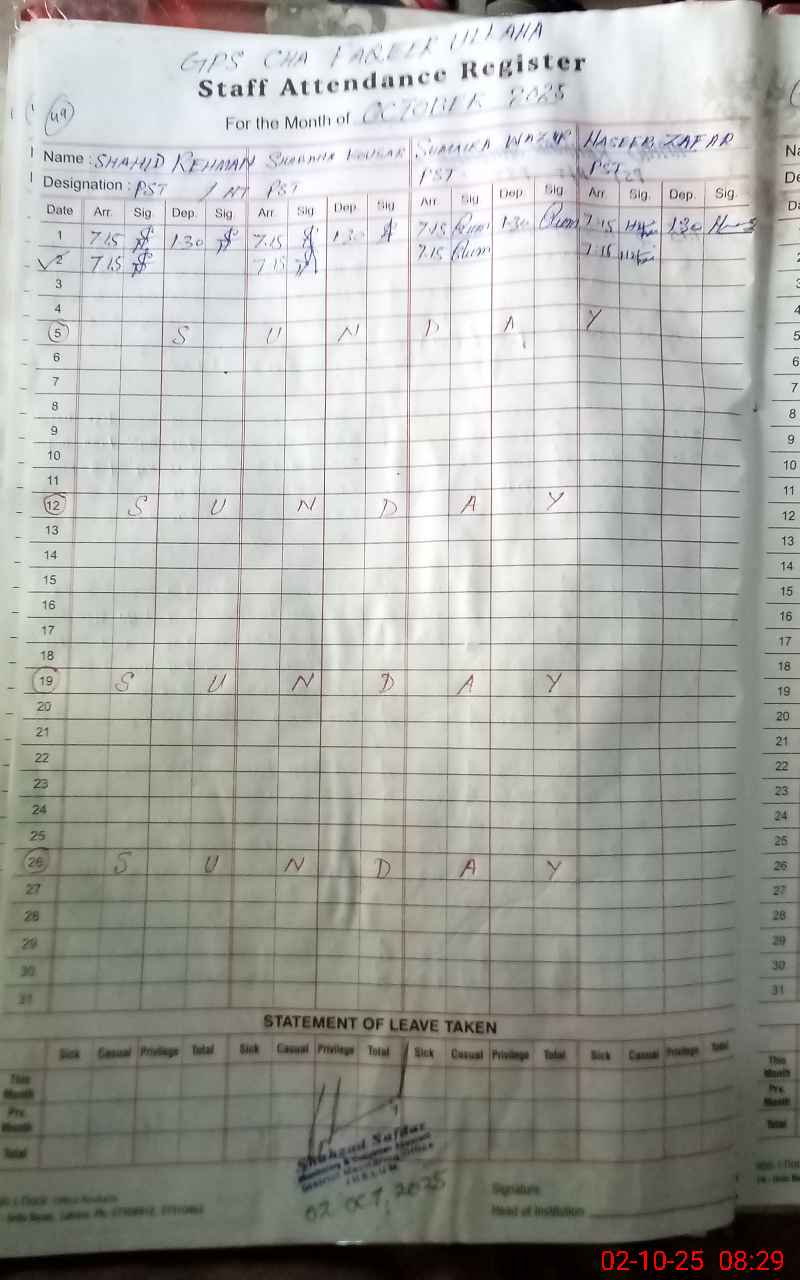 GPS CHA FAREEK ULLAHA
Staff Attendance Register
49
For the Month of OCTOBER 2025
Name : SHAHID REHMAN SHABANA KOUSAR SUMAIRA HASEEB ZAFAR
Designation : PST / HT PST PST PST
Date Arr. Sig. Dep. Sig. Arr. Sig Dep. Sig Arr. Sig Dep. Sig Arr. Sig. Dep. Sig.
1 7.15 1.30 7.15 1.30 7.15 1.30 7.15 1.30
2 7.15 7.15 7.15 7.15
3
4
5 S U N D A Y
6
7
8
9
10
11
12 S U N D A Y
13
14
15
16
17
18
19 S U N D A Y
20
21
22
23
24
25
26 S U N D A Y
27
28
29
30
31
STATEMENT OF LEAVE TAKEN
Sick Casual Privilege Total Sick Casual Privilege Total Sick Casual Privilege Total Sick Casual Privilege Total
This Month
Prv. Month
Total
Shahzad Safdar
JHELUM
02 OCT, 2025
Signature
Head of Institution
Na
De
Da
1
2
3
4
5
6
7
8
9
10
11
12
13
14
15
16
17
18
19
20
21
22
23
24
25
26
27
28
29
30
31
This Month
Prv. Month
Total
02-10-25 08:29